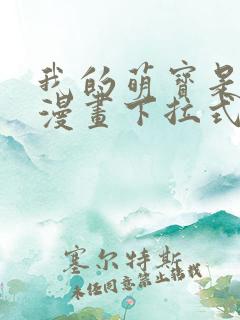 我的萌宝是
漫画下拉式
塞尔特斯
未经同意禁止转载